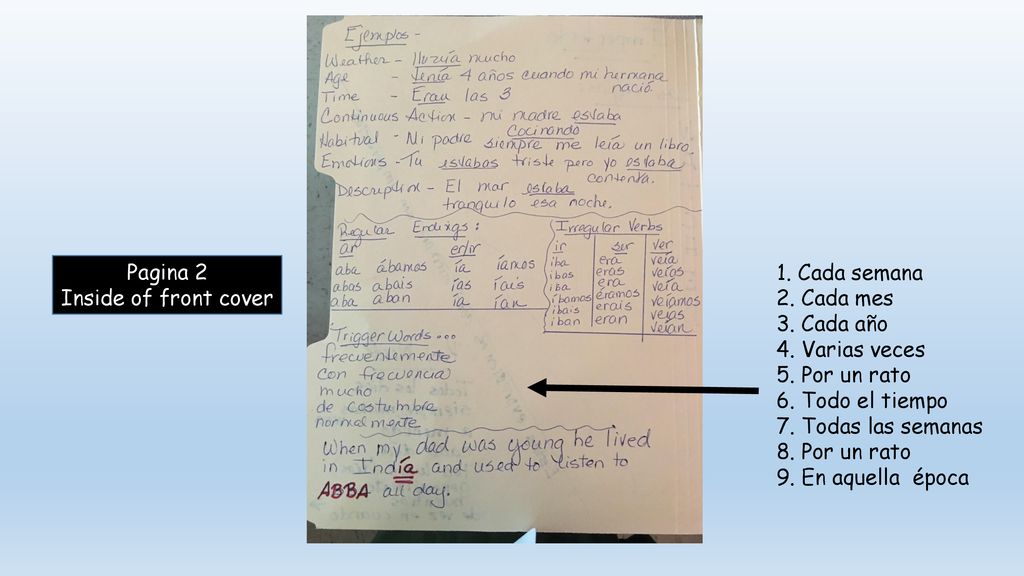 Ejemplos -
Weather - llovía mucho
Age - Tenía 4 años cuando mi hermana
nació.
Time - Eran las 3
Continuous Action - mi madre estaba
cocinando
Habitual - Mi padre siempre me leía un libro.
Emotions - Tu estabas triste pero yo estaba
contenta.
Description - El mar estaba
tranquilo esa noche.
Regular Endings:
ar er/ir
aba ábamos ía íamos
abas abais ías íais
aba aban ía ían
Irregular Verbs
ir ser ver
iba era veía
ibas eras veías
iba era veía
íbamos éramos veíamos
ibais erais veías
iban eran veían
Trigger Words...
frecuentemente
con frecuencia
mucho
de costumbre
normalmente
When my dad was young he lived
in India and used to listen to
ABBA all day.
Pagina 2
Inside of front cover
1. Cada semana
2. Cada mes
3. Cada año
4. Varias veces
5. Por un rato
6. Todo el tiempo
7. Todas las semanas
8. Por un rato
9. En aquella época